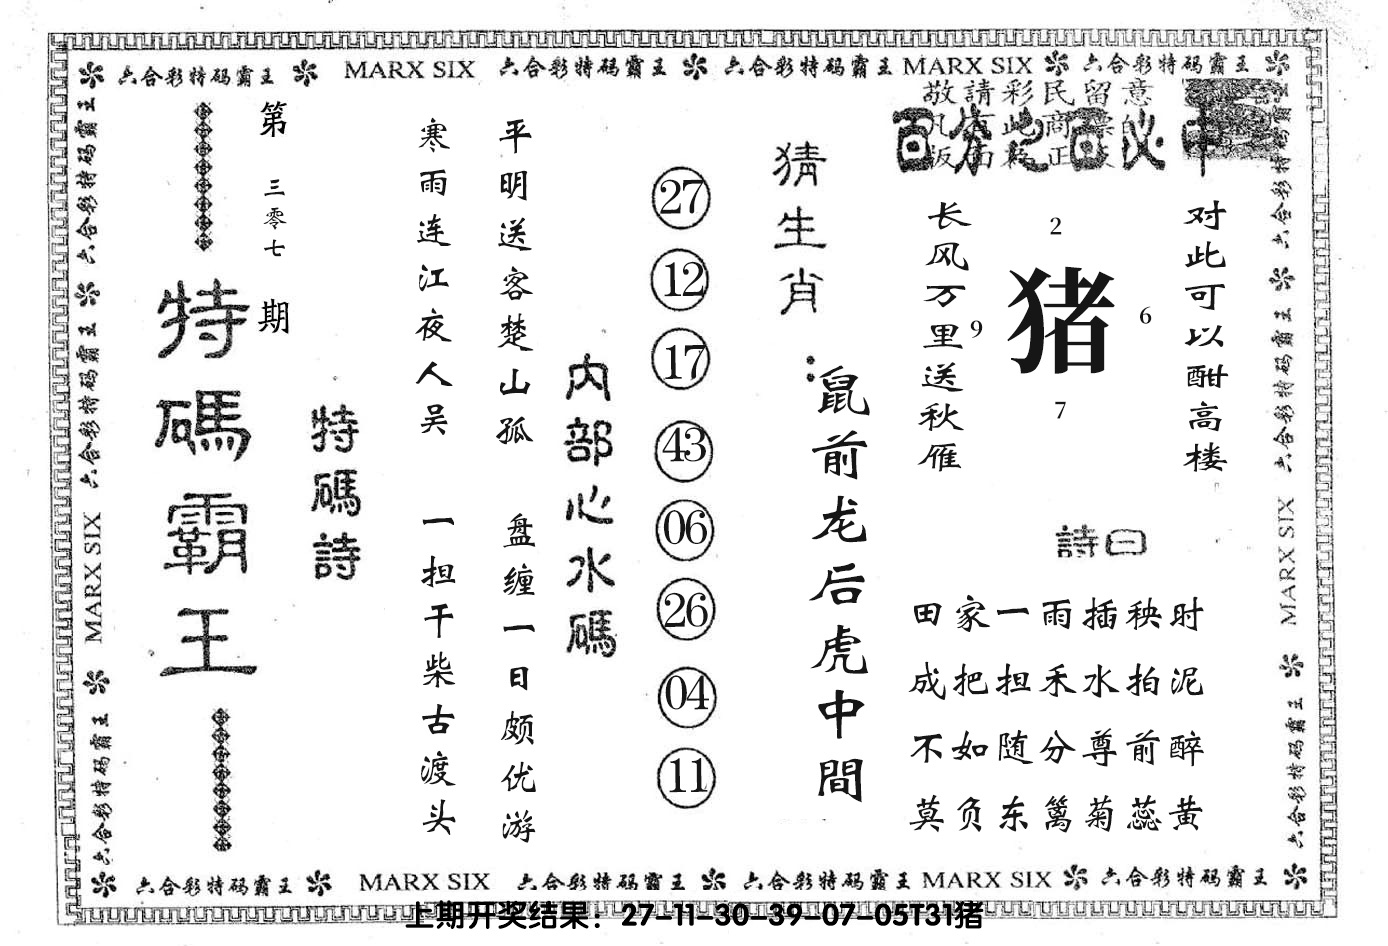 六合彩特码霸王 MARX SIX 六合彩特码霸王 六合彩特码霸王 MARX SIX 六合彩特码霸王
敬請彩民留意
百分之百必中
对此可以酣高楼
2
猪
9
6
7
长风万里送秋雁
詩曰
田家一雨插秧时
成把担禾水拍泥
不如随分尊前醉
莫负东篱菊蕊黄
猜生肖：
鼠前龙后虎中間
27
12
17
43
06
26
04
11
内部心水碼
平明送客楚山孤
盘缠一日颇优游
寒雨连江夜人吴
一担干柴古渡头
特碼詩
第三零七期
特碼霸王
六合彩特码霸王 六合彩特码霸王 MARX SIX 六合彩特码霸王
六合彩特码霸王 六合彩特码霸王 MARX SIX 六合彩特码霸王
六合彩特码霸王 MARX SIX 六合彩特码霸王 六合彩特码霸王 MARX SIX 六合彩特码霸王
上期开奖结果：27-11-30-39-07-05T31猪